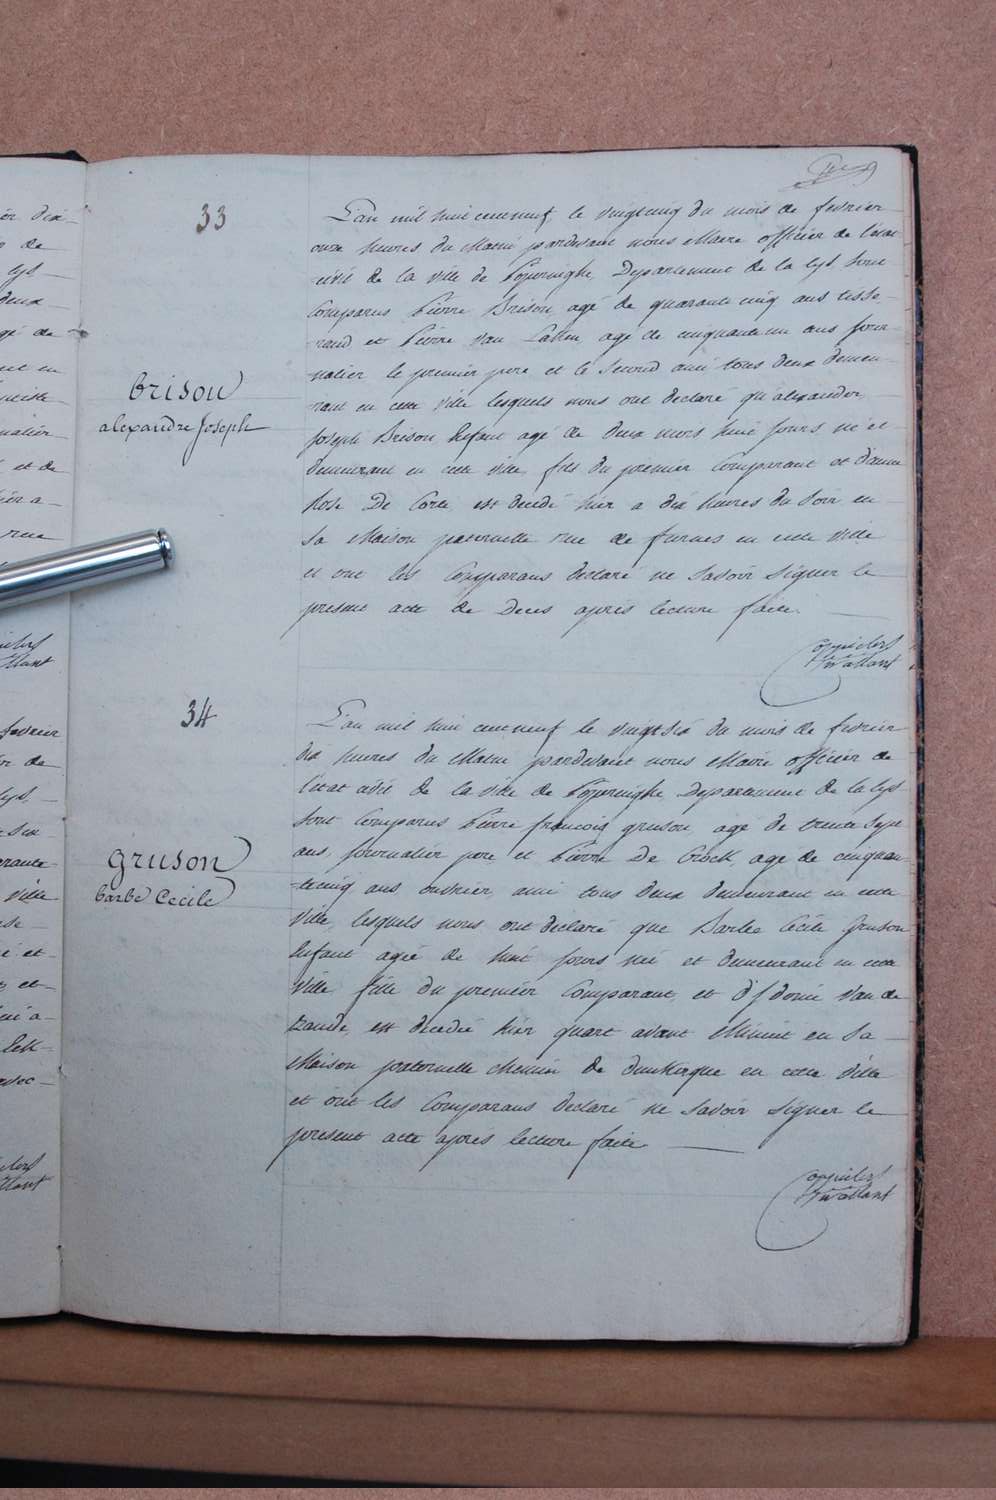 33
L'an mil huit cent neuf, le vingt cinq du mois de fevrier
onze heures du Matin pardevant nous Maire officier de l'état
civil de la ville de Poperinghe, Departement de la lys, sont
Comparus Pierre Brison, agé de quarante cinq ans tisse-
rand et Pierre Van agé de cinquante un ans jour-
nalier le premier pere et le second ami tous deux demeu-
rant en cette ville lesquels nous ont declaré qu'alexander
Brison
alexandre Joseph
Joseph Brison Enfant agé de deux mois huit jours né et
demeurant en cette ville, fils du premier Comparant et d'anne
Rose De Corte est decedé hier a dix heures du soir en
sa Maison paternelle rue de furnes en cette ville
et ont les Comparans declaré ne savoir signer le
present acte de Deces après lecture faite.
34
L'an mil huit cent neuf le vingt six du mois de fevrier
dix heures du Matin pardevant nous Maire officier de
l'état civil de la ville de Poperinghe, Departement de la lys
sont Comparus Pierre francois gruson, agé de trente sept
ans, journalier pere et Pierre De Crock, age de cinquan-
gruson
barbe Cecile
te cinq ans ouvrier, ami tous deux demeurant en cette
ville, lesquels nous ont declaré que Barbe Cécile Gruson
Enfant agée de huit jours née et demeurant en cette
ville fille du premier Comparant, et Van de
est decedée hier quart avant Minuit en sa
Maison paternelle chemin de dunkerque en cette ville
et ont les Comparans declaré ne savoir signer le
present acte après lecture faite